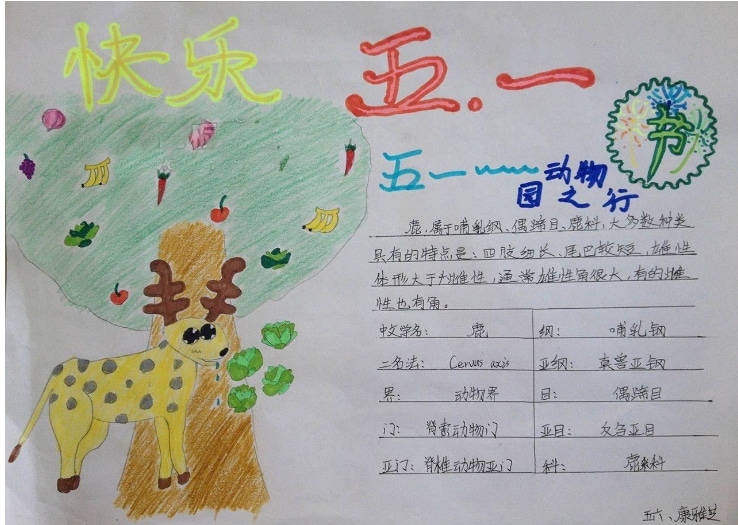 快乐 五.一 节
五一~~~动物
园之行
鹿,属于哺乳纲、偶蹄目、鹿科,大多数种类
具有的特点是:四肢细长、尾巴较短,雄性
体形大于雌性,通常雄性角很大,有的雌
性也有角。
中文学名: 鹿 纲: 哺乳钢
二名法: Cervus axis 亚纲: 真兽亚钢
界: 动物界 目: 偶蹄目
门: 脊索动物门 亚目: 反刍亚目
亚门: 脊椎动物亚门 科: 鹿科
五六、康雅芝